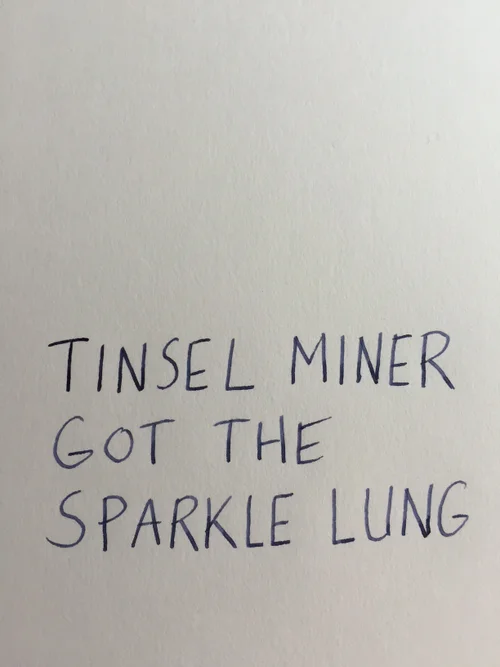 TINSEL MINER
GOT THE
SPARKLE LUNG